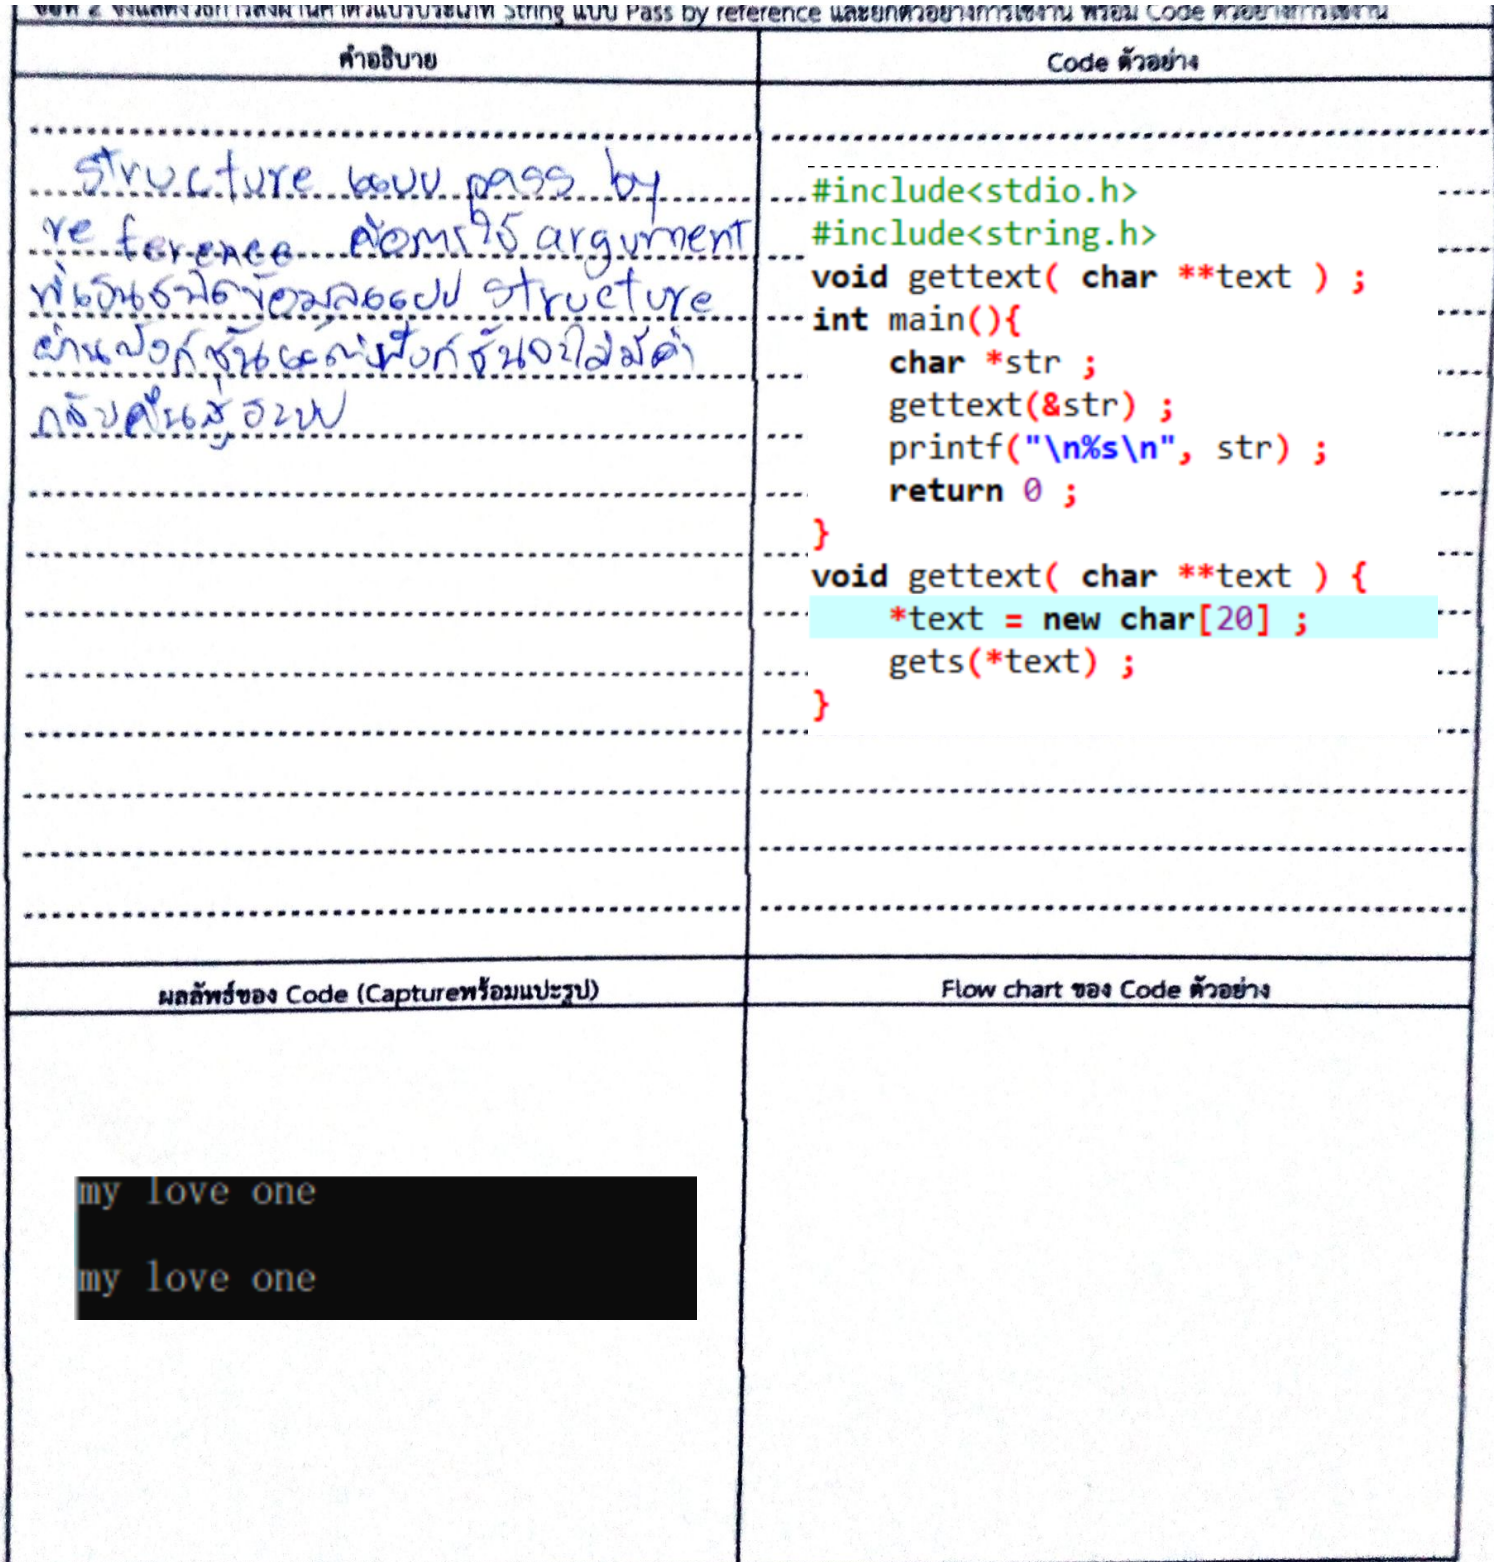 ข้อที่ 2 จงแสดงวิธีการส่งผ่านค่าตัวแปรประเภท String แบบ Pass by reference และยกตัวอย่างการใช้งาน พร้อม Code ตัวอย่างการใช้งาน
คำอธิบาย
structure แบบ pass by
reference คือการใช้ argument
ที่เป็นชนิดข้อมูลแบบ structure
ผ่านฟังก์ชันแต่ฟังก์ชันจะไม่มีค่า
กลับคืนสู่ระบบ
Code ตัวอย่าง
#include<stdio.h>
#include<string.h>
void gettext( char **text ) ;
int main(){
char *str ;
gettext(&str) ;
printf("\n%s\n", str) ;
return 0 ;
}
void gettext( char **text ) {
*text = new char[20] ;
gets(*text) ;
}
ผลลัพธ์ของ Code (Captureพร้อมแปะรูป)
my love one
my love one
Flow chart ของ Code ตัวอย่าง